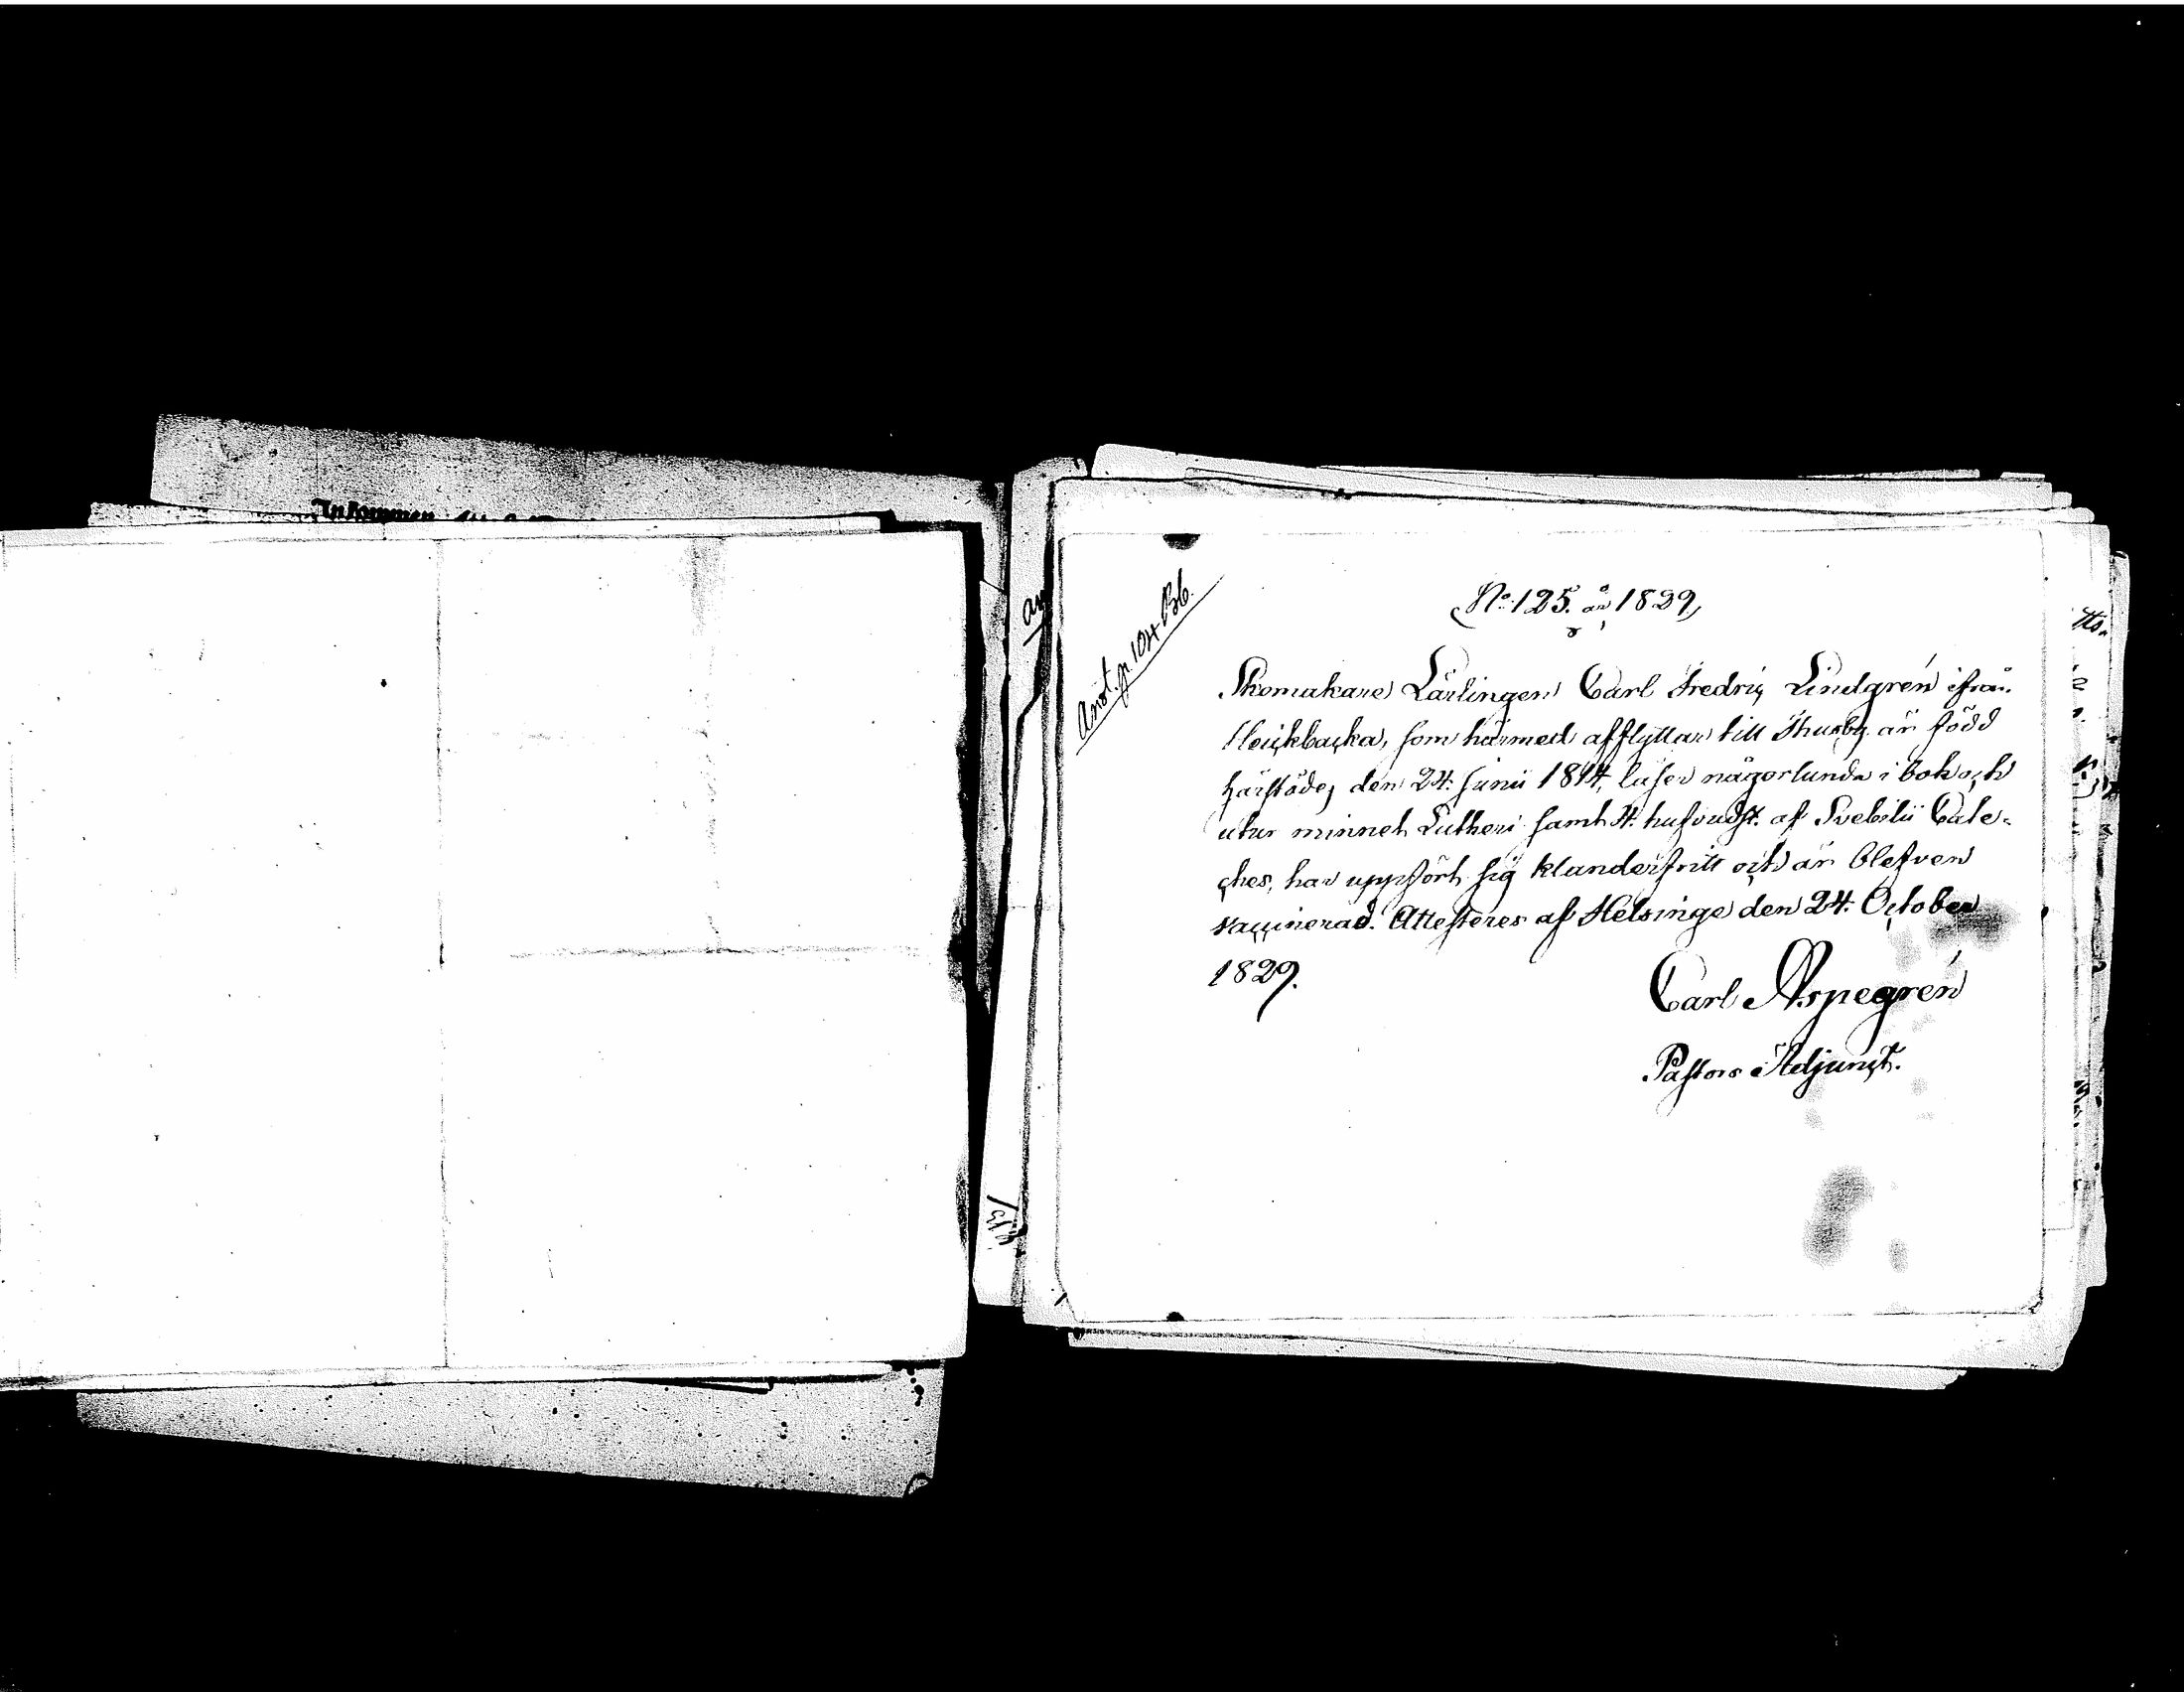 Inkommen
Anot. p. 104 Bb.
No: 125. år 1829,
Skomakare Lärlingen Carl Fredric Lindgrén ifrån
Heickbacka, som härmed afflyttar till Thusby är född
härstädes den 24. Junii 1814, läser någorlunda i bok och
utur minnet Lutheri samt 4. hufvudst. af Svebilii Cate-
ches, har uppfört sig klanderfritt och är blefven
vaccinerad. Attesteres af Helsinge den 24. October
1829.
Carl Aspegrén
Pastors Adjunct.